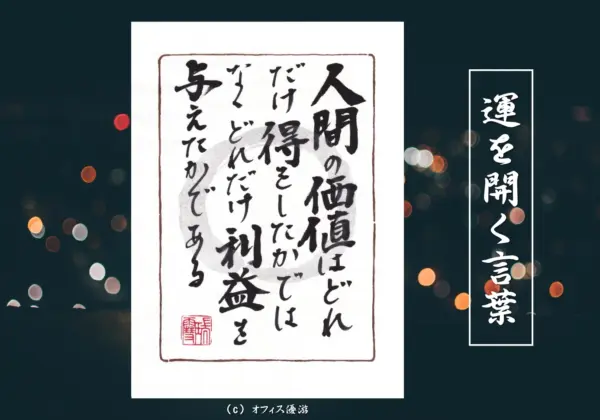 運を開く言葉
人間の価値はどれ
だけ得をしたかでは
なくどれだけ利益を
与えたかである
(c) オフィス優游